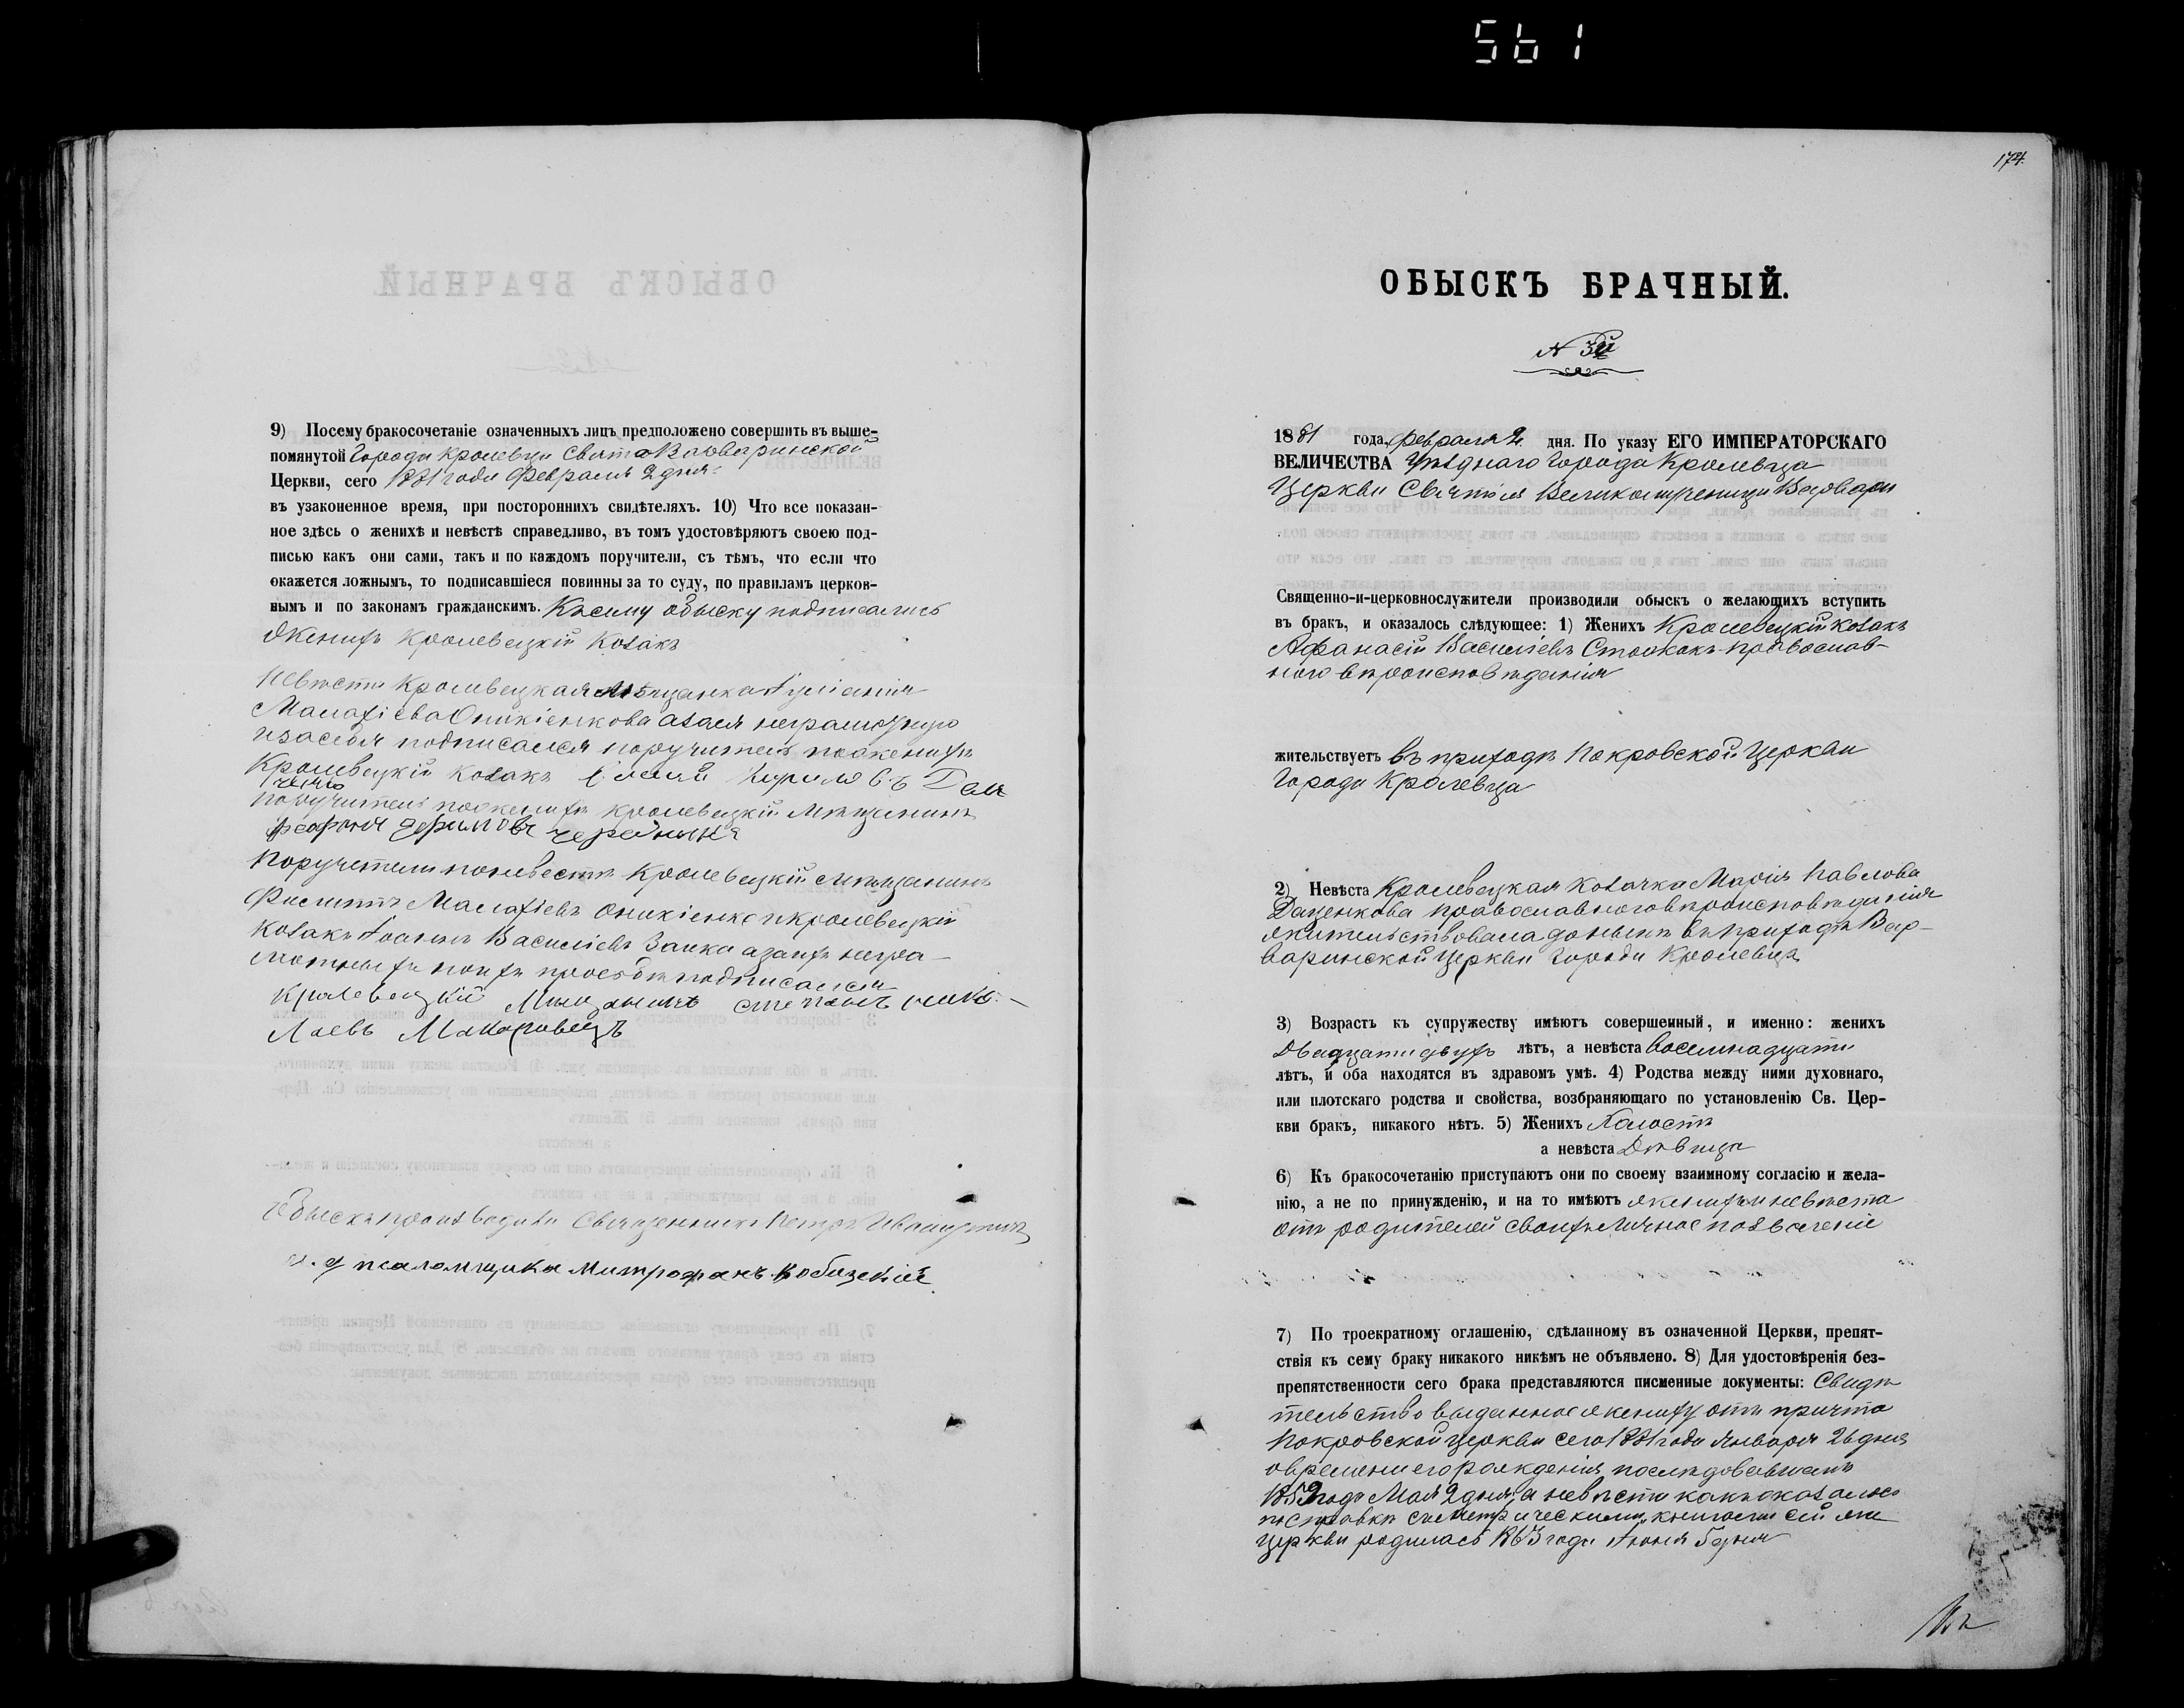 561
9) Посему бракосочетаніе означенныхъ лицъ предположено совершить въ выше-
помянутой Города Кролевца Свято Варваринской
Церкви, сего 1881 года Февраля 2 дня
въ узаконенное время, при постороннихъ свидѣтеляхъ. 10) Что все показан-
ное здѣсь о женихѣ и невѣстѣ справедливо, въ томъ удостовѣряютъ своею под-
писью какъ они сами, такъ и по каждомъ поручители, съ тѣмъ, что если что
окажется ложнымъ, то подписавшіеся повинны за то суду, по правиламъ церков-
нымъ и по законамъ гражданскимъ. Къ сему обыску подписались
Женихъ Кролевецкій Козакъ
Невѣста Кролевецкая Мѣщанка Іуліанія
Малахіева Оникіенкова а за ея неграмотную
и за себя подписался поручитель по женихѣ
Кролевецкій Козакъ
поручитель по женихѣ Кролевецкій Мѣщанинъ
поручители по невестѣ Кролевецкій Мѣщанинъ
Филиппъ Малахіевъ Оникіенко и Кролевецкій
Козакъ Іоаннъ Василіевъ Заика а за ихъ негра-
мотныхъ по ихъ прозбѣ подписался
Кролевецкій Мещанинъ степанъ нико-
лаевъ Макаровецъ
Обыскъ производили Священникъ Петръ
и. д псаломщика Митрофанъ
174.
ОБЫСКЪ БРАЧНЫЙ.
N 3й
1881 года, Февраля 2 дня. По указу ЕГО ИМПЕРАТОРСКАГО
ВЕЛИЧЕСТВА Уѣзднаго Города Кролевца
Церкви Святыя Великомученицы Варвары
Священно-и-церковнослужители производили обыскъ о желающихъ вступить
въ бракъ, и оказалось слѣдующее: 1) Женихъ Кролевецкій Козакъ
Афанасій Василіевъ православ-
ного вѣроисповѣданія
жительствуетъ въ приходѣ Покровской Церкви
Города Кролевца
2) Невѣста Кролевецкая Козачка Марія Павлова
Даценкова православного вѣроисповѣданія
жительствовала до нынѣ въ приходѣ Вар-
варинской Церкви Города Кролевца
3) Возрастъ къ супружеству имѣютъ совершенный, и именно: женихъ
Двадцати двухъ лѣтъ, а невѣста восемнадцати
лѣтъ, и оба находятся въ здравомъ умѣ. 4) Родства между ними духовнаго,
или плотскаго родства и свойства, возбраняющаго по установленію Св. Цер-
кви бракъ, никакого нѣтъ. 5) Женихъ Холостъ
а невѣста Дѣвица
6) Къ бракосочетанію приступаютъ они по своему взаимному согласію и жела-
нію, а не по принужденію, и на то имѣютъ женихъ и невѣста
отъ родителей своихъ личное позволеніе
7) По троекратному оглашенію, сдѣланному въ означенной Церкви, препят-
ствія къ сему браку никакого никѣмъ не объявлено. 8) Для удостовѣренія без-
препятственности сего брака представляются писменные документы: Свидѣ
тельство выданное жениху отъ причта
Покровской Церкви сего 1881 года Января 26 дня
о времени его рожденія, послѣдовавшемъ
года Мая 2 дня, а невѣста какъ оказалось
по справкѣ съ метрическими книгами сей же
Церкви родилась 1863 года Іюня 5 дня